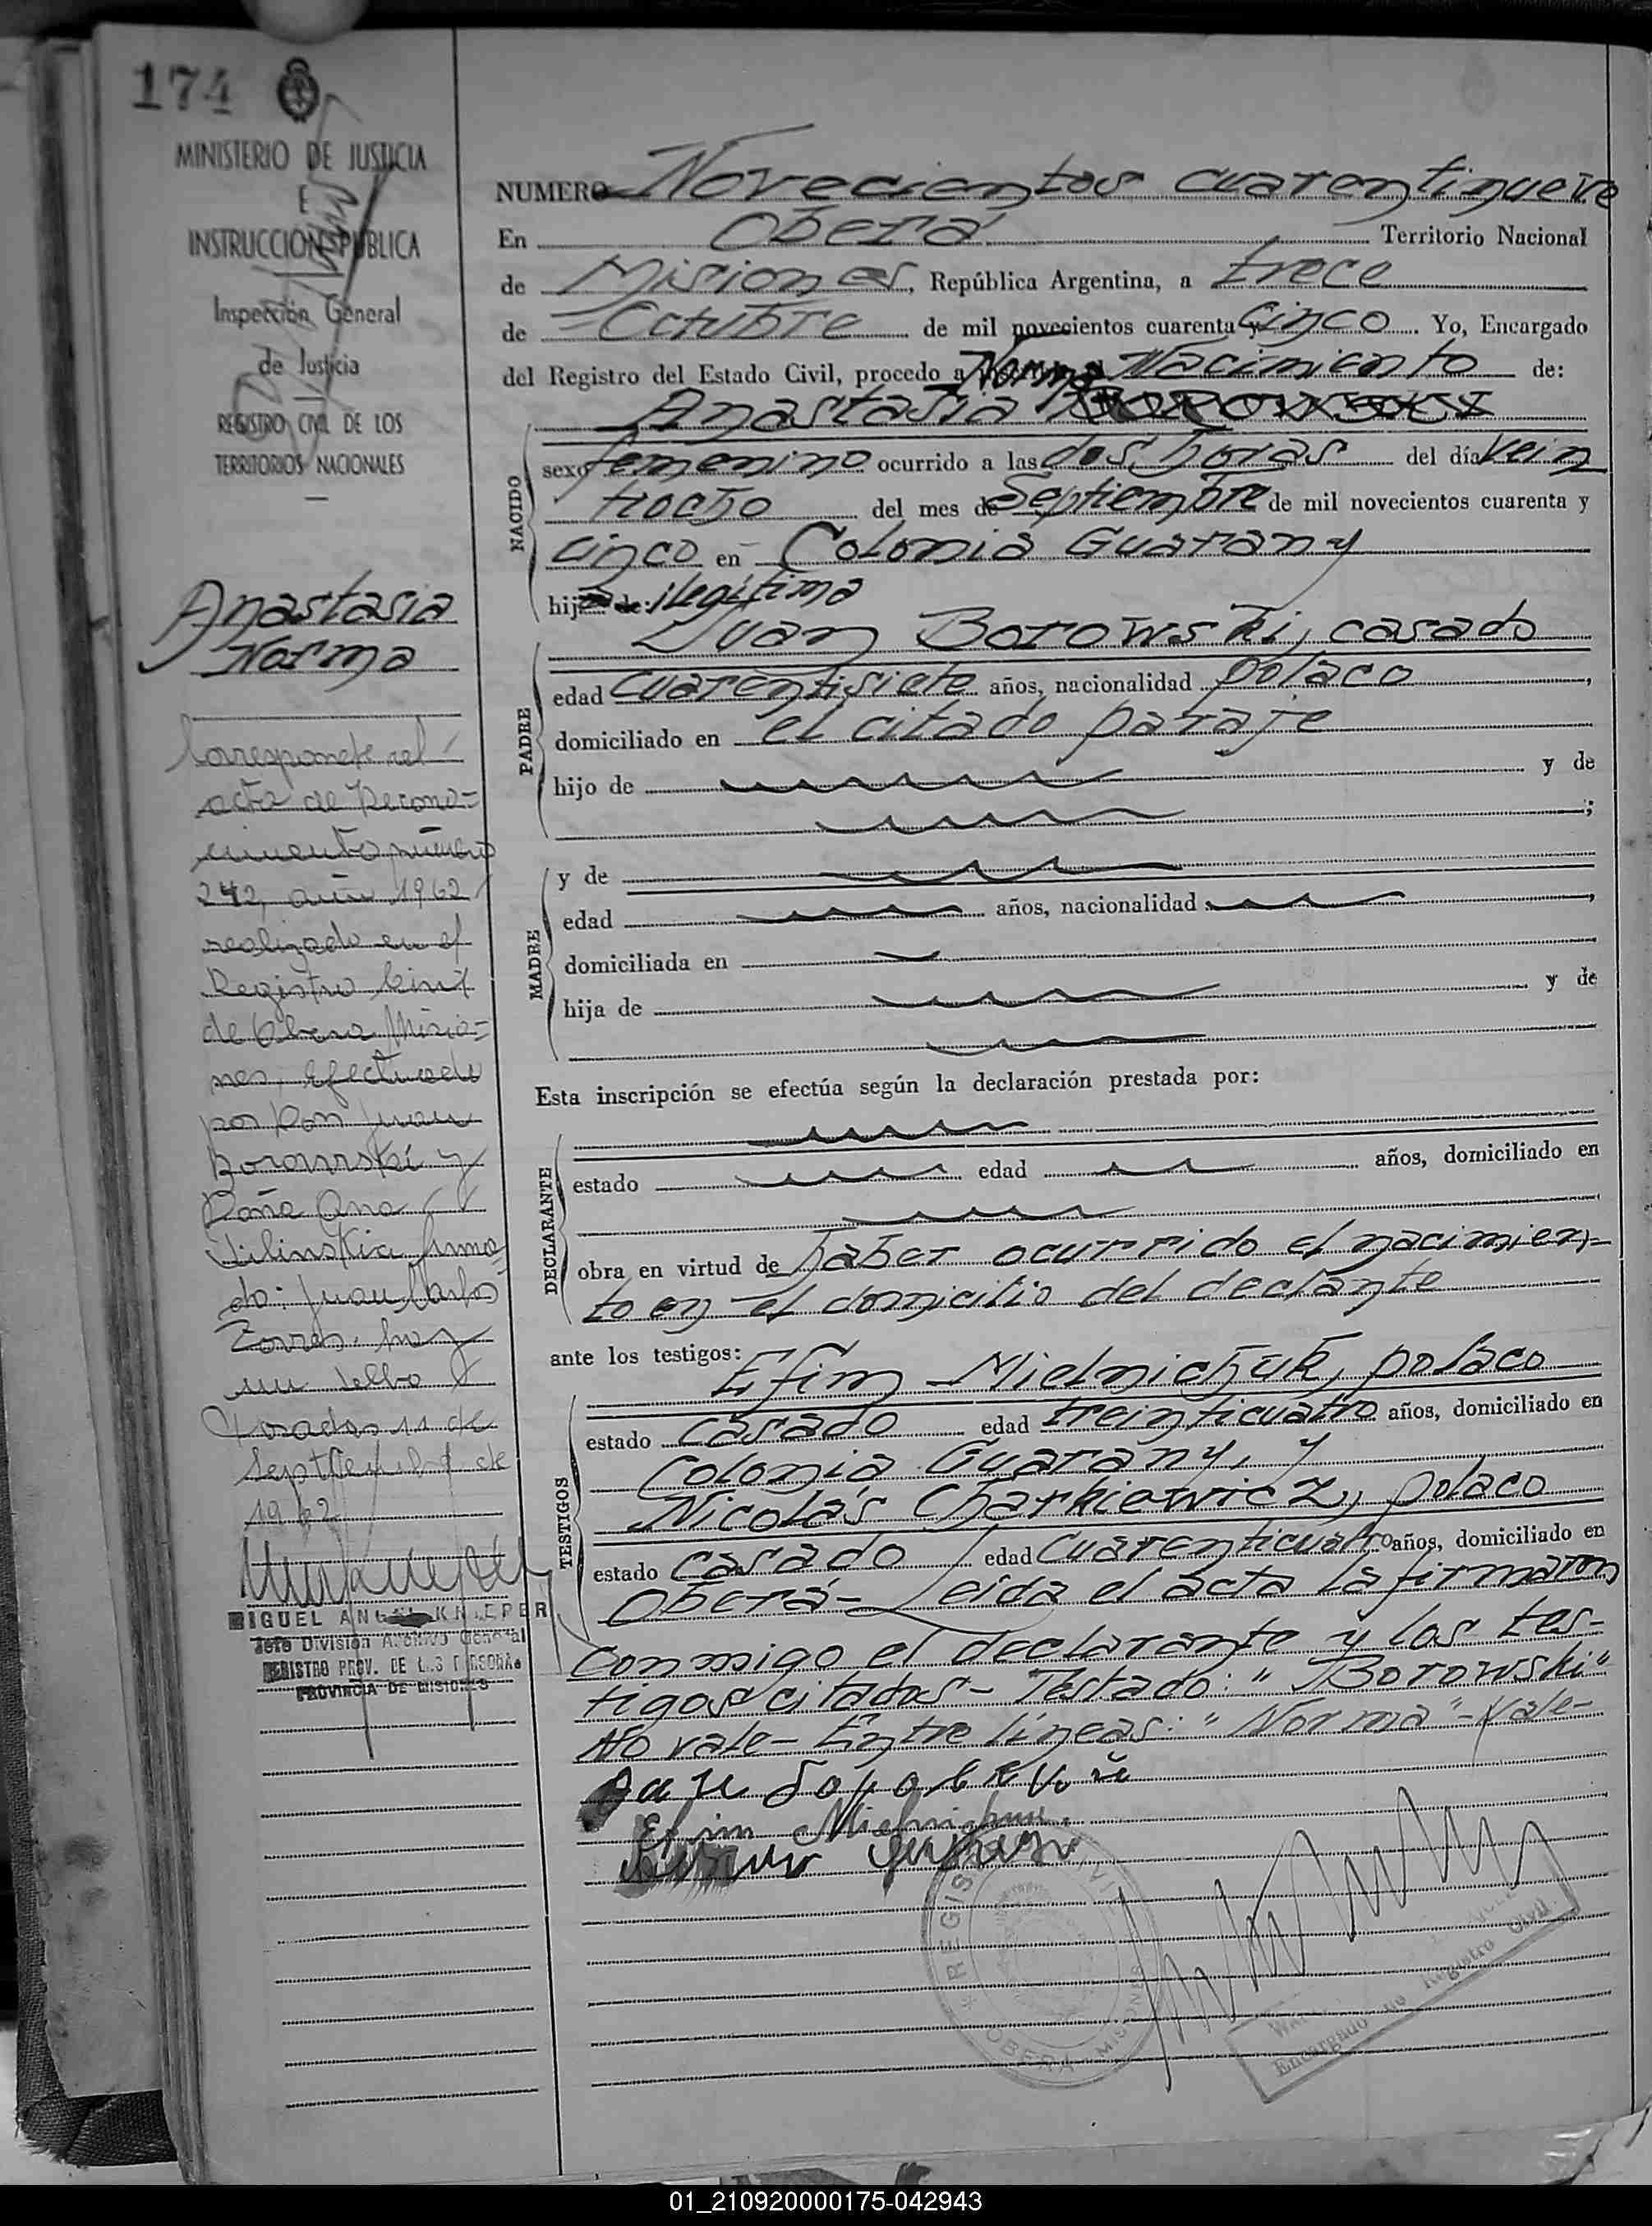 174
MINISTERIO DE JUSTICIA
E
INSTRUCCION PUBLICA
Inspección General
de Justicia
REGISTRO CIVIL DE LOS
TERRITORIOS NACIONALES
Anastasia
Norma
Corresponde al
acta de Recono=
cimiento número
242, año 1962
realizado en el
Registro Civil
de Obera Misio=
nes, efectuado
por Don Juan
Borowski y
Doña Ana
firma
do: Juan Carlos
Torres. hay
un sello
Posadas 11 de
Septiembre de
1962
MIGUEL ANGEL
Jefe División Archivo General
REGISTRO PROV. DE LAS PERSONAS
PROVINCIA DE MISIONES
NUMERO Novecientos cuarentinueve
En Oberá Territorio Nacional
de Misiones, República Argentina, a trece
de Octubre de mil novecientos cuarenta y cinco. Yo, Encargado
del Registro del Estado Civil, procedo a Norma Nacimiento de:
Anastasia Borowski
NACIDO
sexo femenino ocurrido a las dos horas del día vein
tiocho del mes de Septiembre de mil novecientos cuarenta y
cinco en Colonia Guarany
hija de: ilegítima
PADRE
Juan Borowski, casado
edad cuarentisiete años, nacionalidad polaco,
domiciliado en el citado paraje
hijo de y de
;
MADRE
y de
edad años, nacionalidad ,
domiciliada en
hija de y de
Esta inscripción se efectúa según la declaración prestada por:
DECLARANTE
estado edad años, domiciliado en
obra en virtud de haber ocurrido el nacimien=
to en el domicilio del declante
ante los testigos:
TESTIGOS
Efim Mielnichuk, polaco
estado casado edad treinticuatro años, domiciliado en
Colonia Guarany, y
Nicolás Charkiewicz, polaco
estado casado edad cuarenticuatro años, domiciliado en
Oberá- Leída el acta la firmaron
conmigo el declarante y los tes-
tigos citados- Testado: "Borowski"
No vale- Entre líneas: "Norma"-Vale-
Efim Mielnichuk
REGISTRO CIVIL
OBERA MISIONES
Encargado Registro Civil
01_210920000175-042943